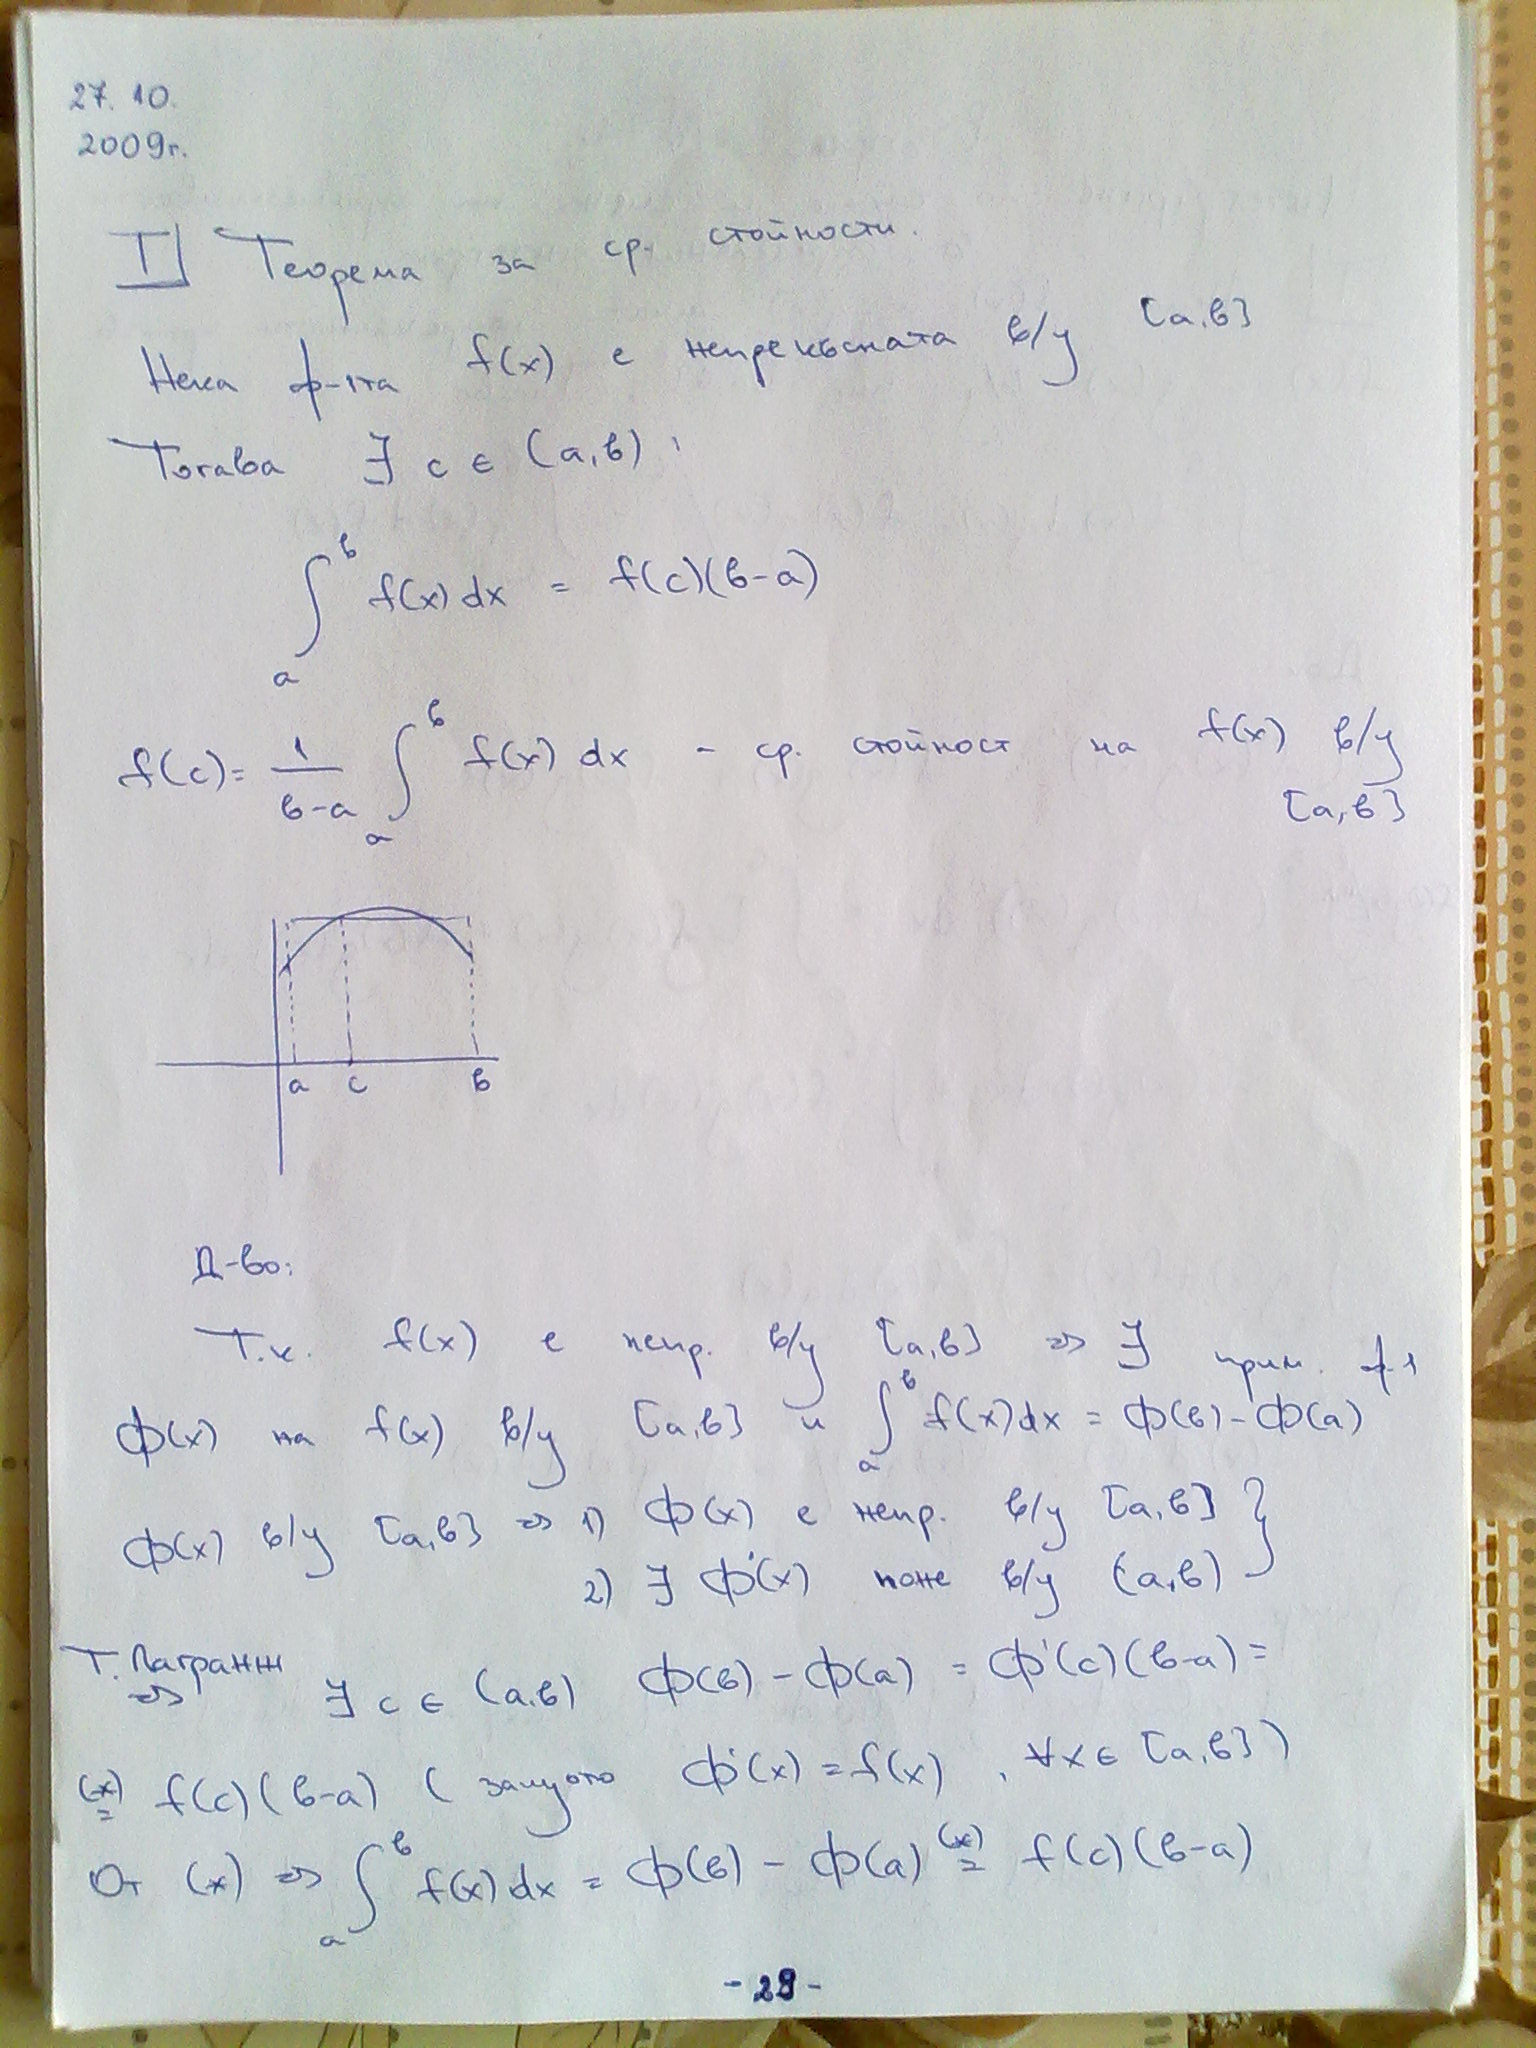 27. 10.
2009г.
T Теорема за ср. стойности.
Нека ф-ята f(x) е непрекъсната в/у [a,b]
Тогава ∃ c ∈ (a,b) :
∫ₐᵇ f(x) dx = f(c)(b-a)
f(c) = 1/(b-a) ∫ₐᵇ f(x) dx - ср. стойност на f(x) в/у
[a,b]
a c b
Д-во:
Т.к. f(x) е непр. в/у [a,b] => ∃ прим. ф-я
Φ(x) на f(x) в/у [a,b] и ∫ₐᵇ f(x)dx = Φ(b) - Φ(a)
Φ(x) в/у [a,b] => 1) Φ(x) е непр. в/у [a,b] }
2) ∃ Φ'(x) поне в/у (a,b)
Т. Лагранж => ∃ c ∈ (a,b) Φ(b) - Φ(a) = Φ'(c)(b-a) =
(*)= f(c)(b-a) ( защото Φ'(x) = f(x) , ∀x ∈ [a,b] )
От (*) => ∫ₐᵇ f(x)dx = Φ(b) - Φ(a) (*)= f(c)(b-a)
- 29 -